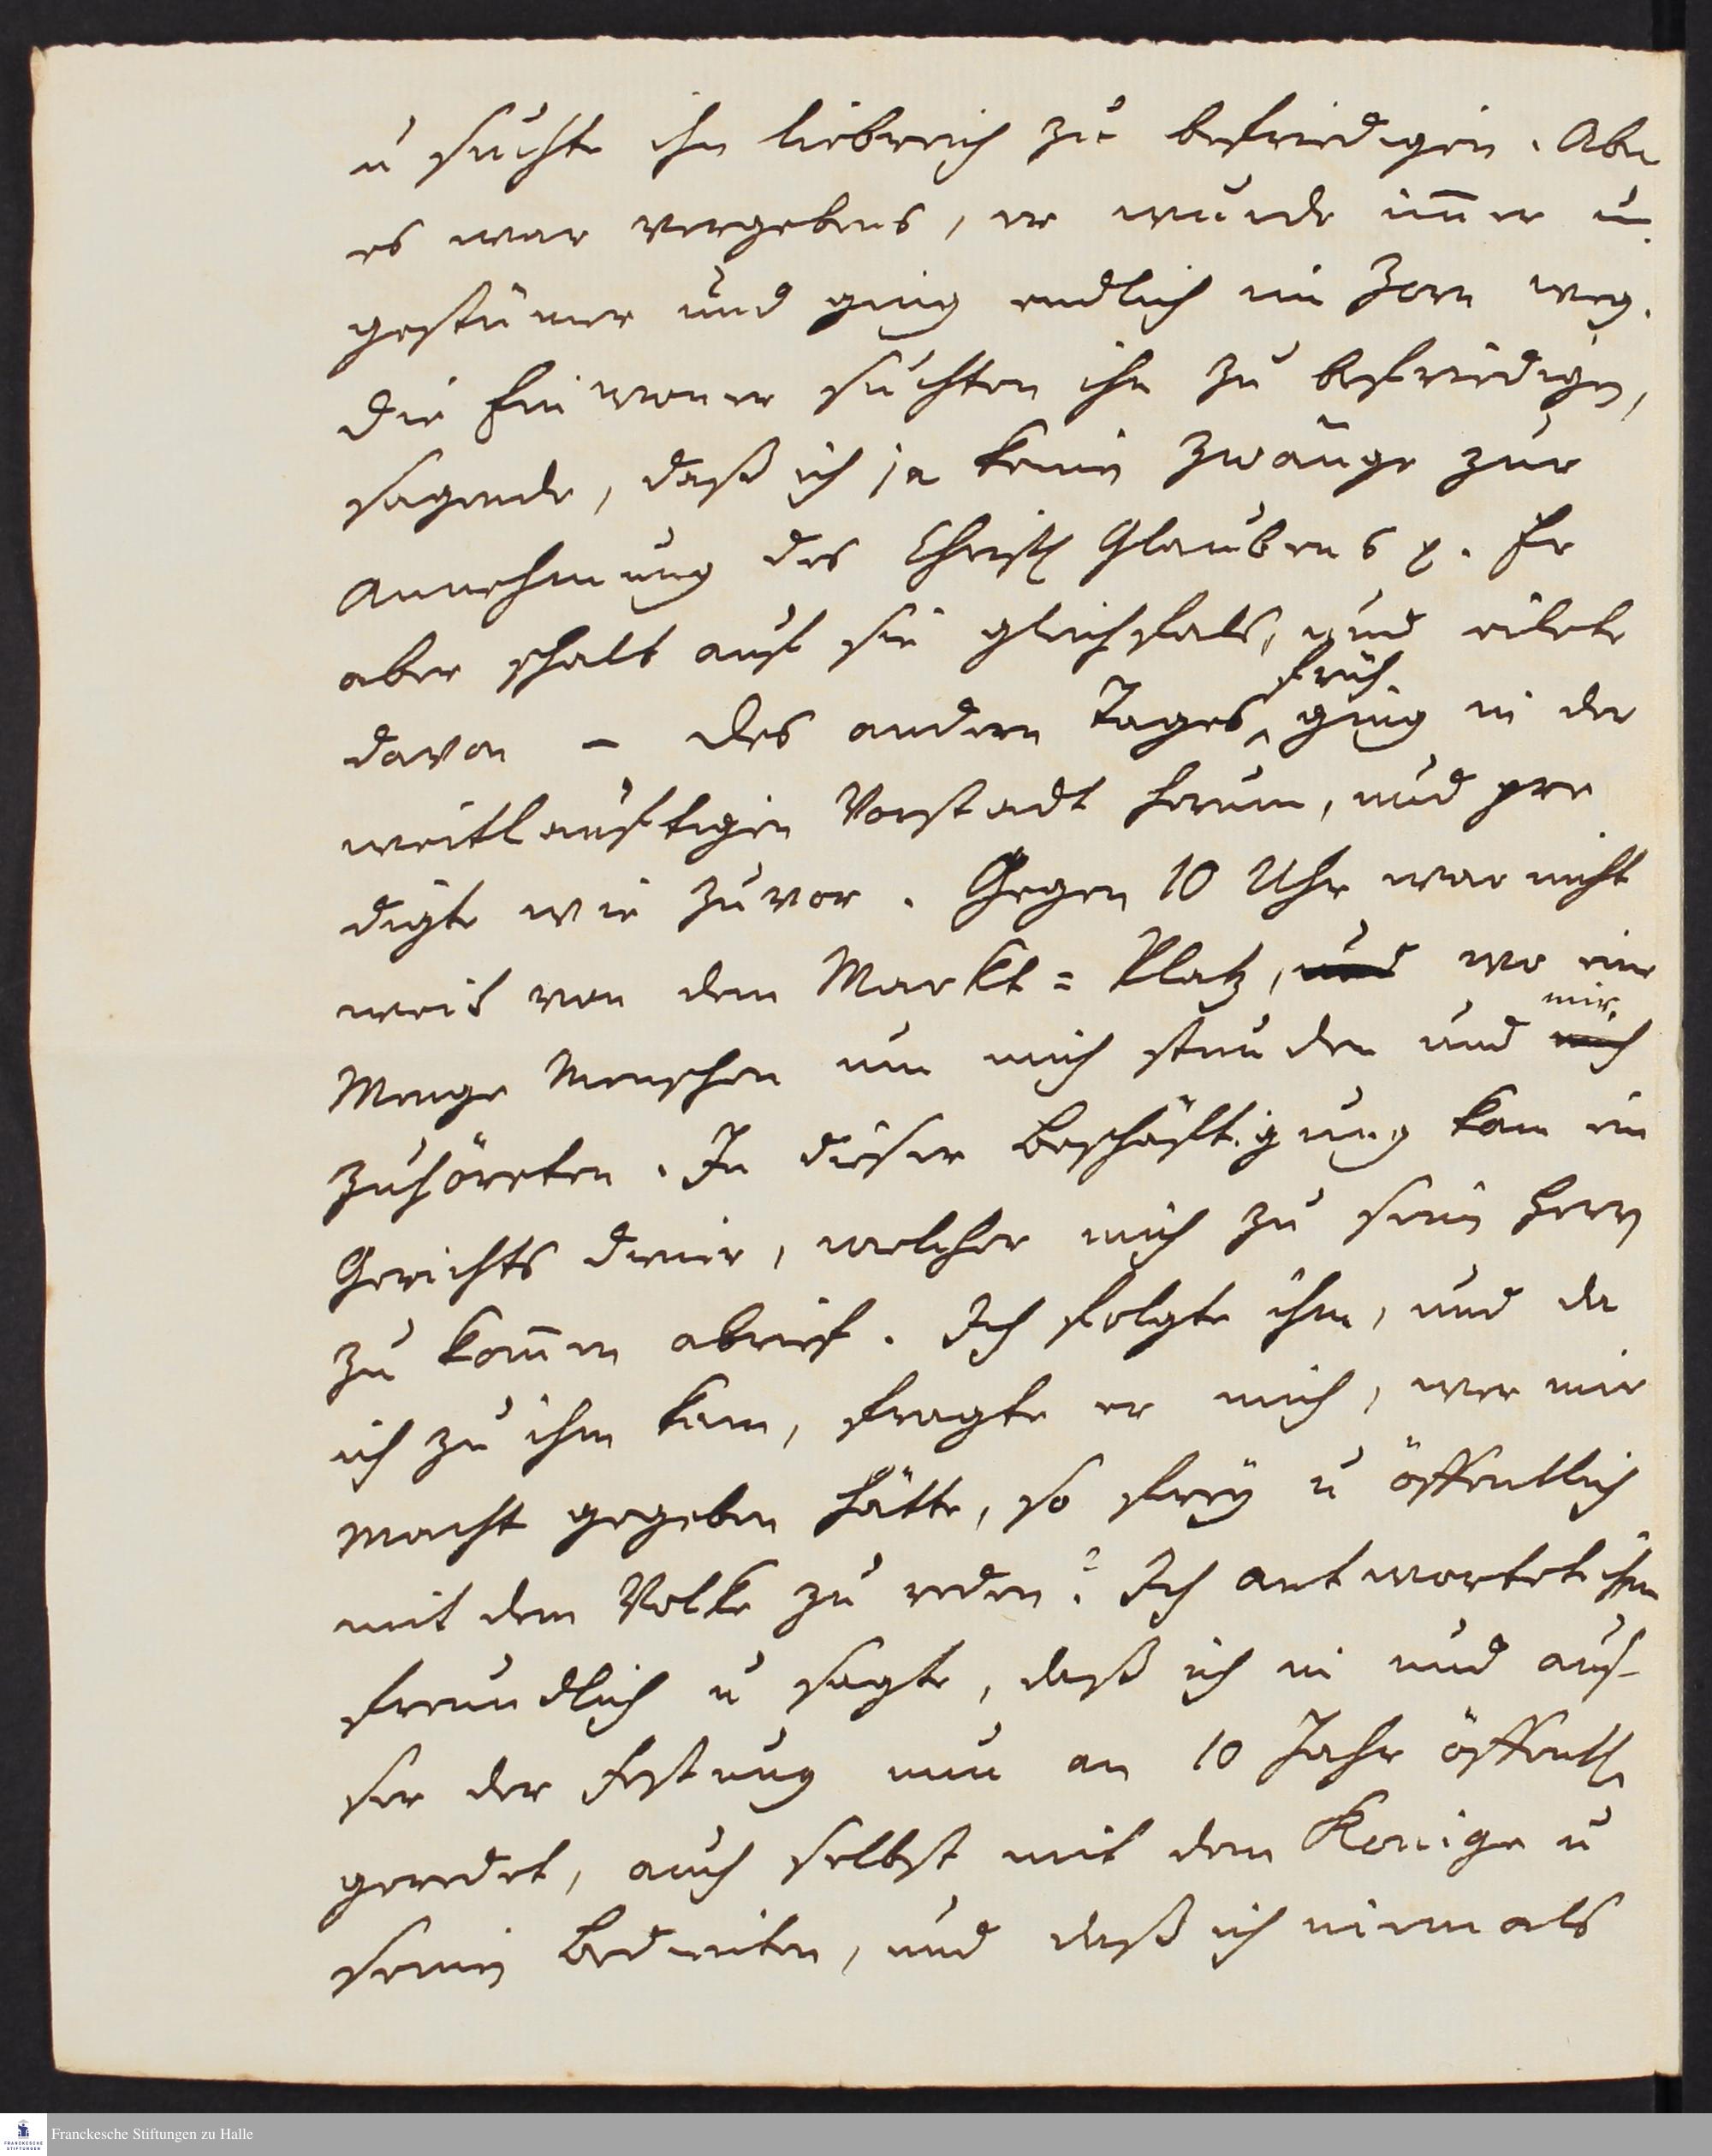 u suchte ihn liebreich zu befriedigen. Aber
es war vergebens, er wurde im̄er un
gestümer und ging endlich im Zorn weg.
Die Einwoner suchten ihn zu befriedigen,
sagende, daß ich ja keinen zwänge zur
Annehmung des Christl Glaubens p. Er
aber schalt auf sie gleichfals, und eilete
davon – Des andern Tages früh ging in der
weitläuftigen Vorstadt herum, und pre
digte wie zuvor. Gegen 10 Uhr war nicht
weit von dem Markt=Platz, und wo eine
Menge Menschen um mich stunden und mich mir
zuhöreten. In dieser Beschäftigung kam ein
Gerichts diener, welcher mich zu sein Herrn
zu kom̄en abrief. Ich folgte ihm, und da
ich zu ihm kam, fragte er mich, wer mir
Macht gegeben hätte, so frey u öffentlich
mit dem Volke zu reden? Ich antwortet ihm
freundlich u sagte, daß ich in und aus-
ser der Festung nun an 10 Jahr öffentl.
geredet, auch selbst mit dem Konige u
seinen Bedienten, und daß ich niemals
Franckesche Stiftungen zu Halle